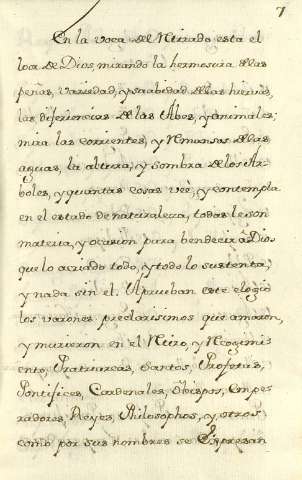 7
En la voca del Retirado esta el
loor de Dios, mirando la hermosura de las
peñas, variedad, y suabidad de las hierbas,
las diferiencias de las Abes, y animales;
mira las corrientes, y Remansos de las
aguas, la altura, y sombra de los Ar-
boles, y quantas cosas vèe, y contempla
en el estado de naturaleza, todas le son
materia, y ocasion para bendecir à Dios
que lo acriado todo, y todo lo sustenta;
y nada sin el. Aprueban este elogio
los varones preclarisimos que amaron,
y murieron en el Retiro, y Recogimi-
ento, Pratriarcas, Santos, Profetas,
Pontifices, Cardenales, Obispos, Empe-
radores, Reyes, Philosophos, y otros
como por sus nombres se Expresan